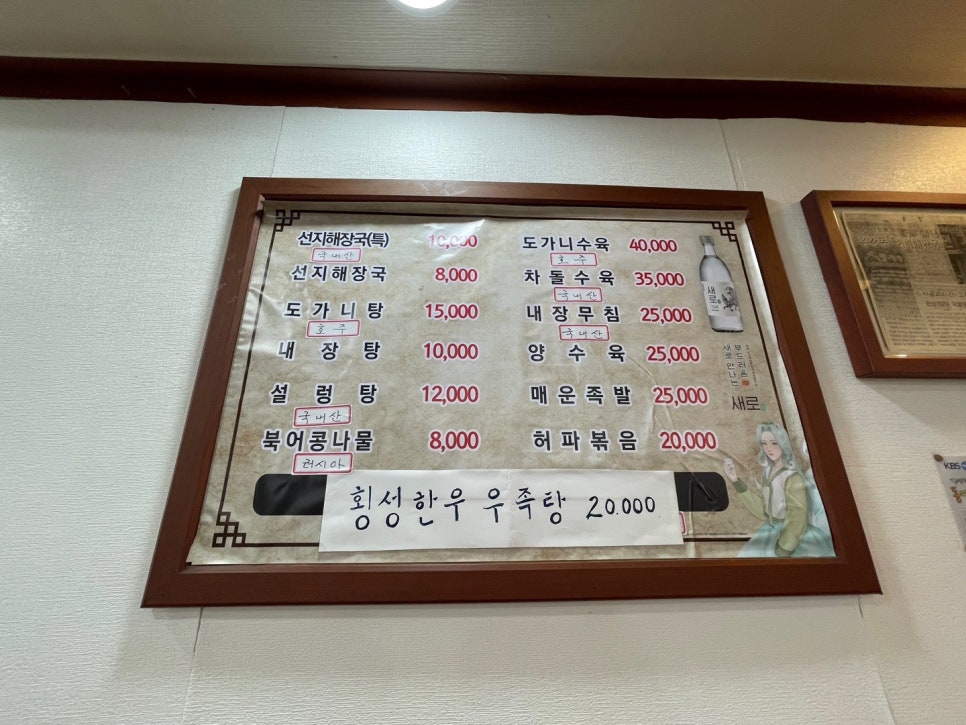 선지해장국(특) 10,000
국내산
선지해장국 8,000
도가니탕 15,000
호주
내장탕 10,000
설렁탕 12,000
국내산
북어콩나물 8,000
러시아
도가니수육 40,000
호주
차돌수육 35,000
국내산
내장무침 25,000
국내산
양수육 25,000
매운족발 25,000
허파볶음 20,000
횡성한우 우족탕 20.000
새로
부드러움
새로 만나는
새로
KBS